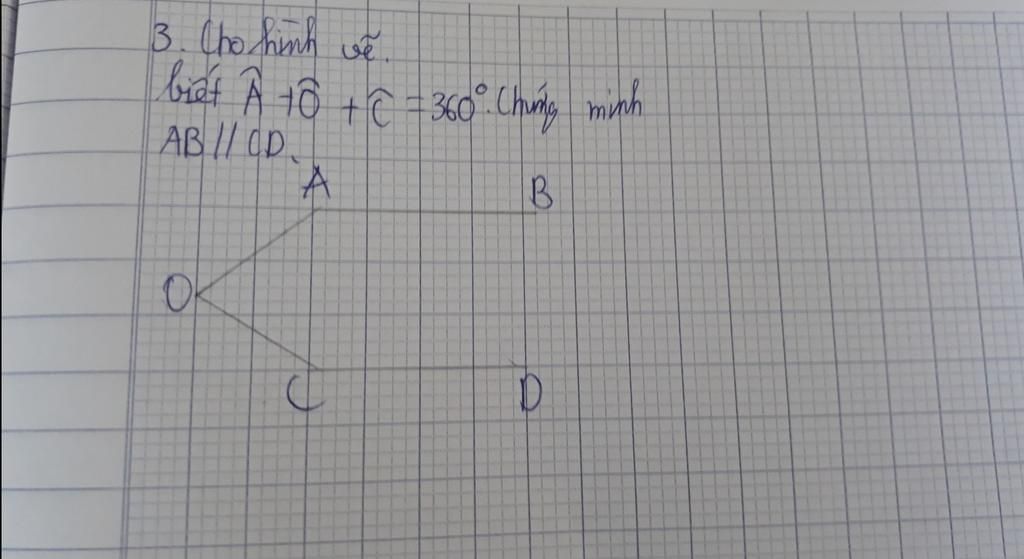 3. Cho hình vẽ.
biết Â + Ô + Ĉ = 360°. Chứng minh
AB // CD.
A
B
O
C
D